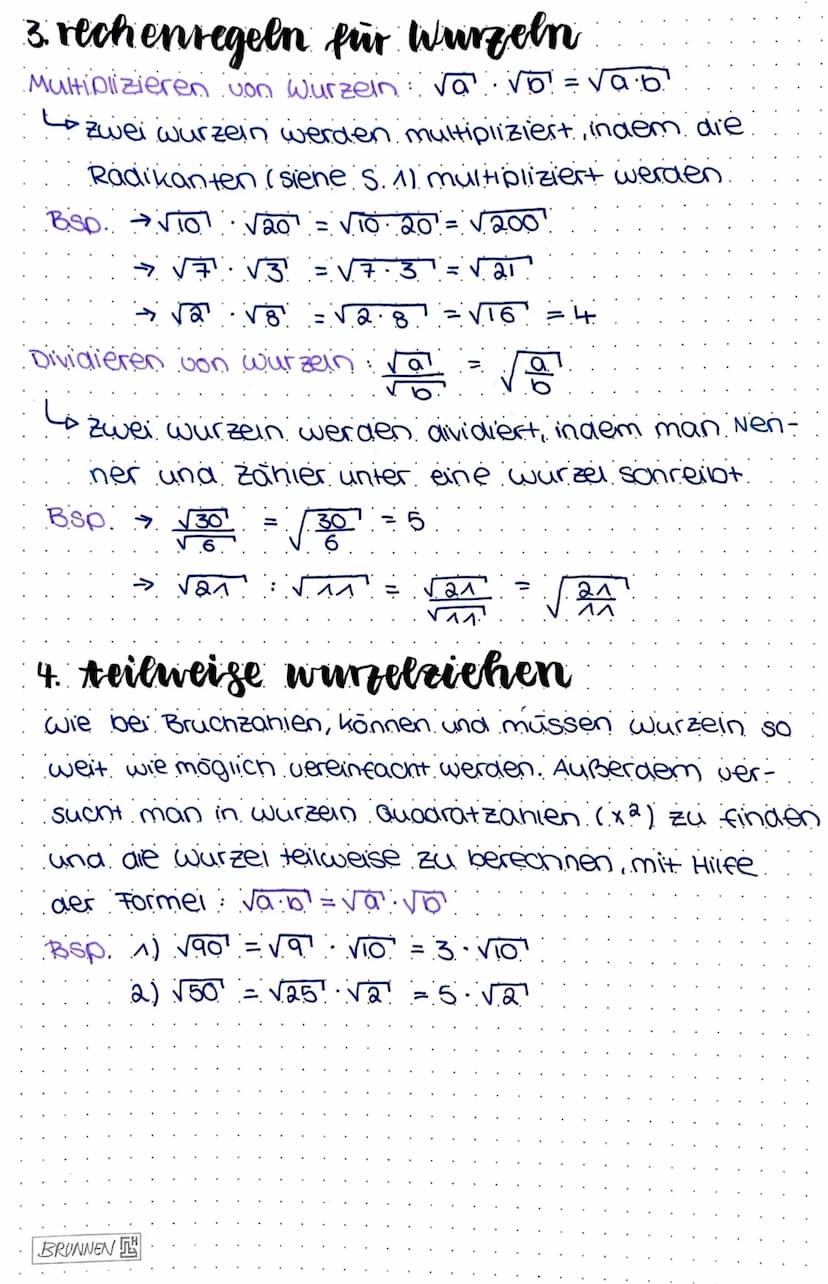 3. rechenregeln für Wurzeln
Multiplizieren von Wurzeln: √a · √b = √a·b
↳ zwei wurzeln werden multipliziert, indem die
Radikanten (siehe S. 1) multipliziert werden.
Bsp. → √10 · √20 = √10·20 = √200
→ √7 · √3 = √7·3 = √21
→ √2 · √8 = √2·8 = √16 = 4
Dividieren von wurzeln: √a/√b = √(a/b)
↳ zwei wurzeln werden dividiert, indem man Nen-
ner und Zähler unter eine wurzel schreibt.
Bsp. → √30/√6 = √(30/6) = 5
→ √21 : √11 = √21/√11 = √(21/11)
4. teilweise wurzelziehen
Wie bei Bruchzahlen, können und müssen wurzeln so
weit wie möglich vereinfacht werden. Außerdem ver-
sucht man in wurzeln Quadratzahlen (x²) zu finden
und die wurzel teilweise zu berechnen, mit Hilfe
der Formel: √a·b = √a · √b
Bsp. 1) √90 = √9 · √10 = 3 · √10
2) √50 = √25 · √2 = 5 · √2
BRUNNEN